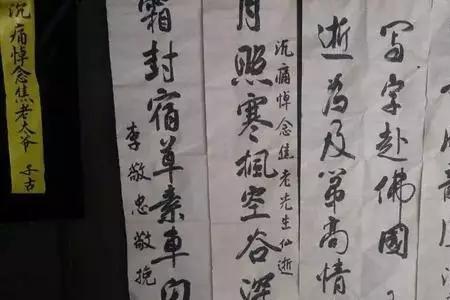 写字赴佛國
逝為及第高情
沉痛悼念焦老先生仙逝
月照寒楓空谷深
霜封宿草素車
李敬忠敬挽
沉痛悼念焦老太爷 子古